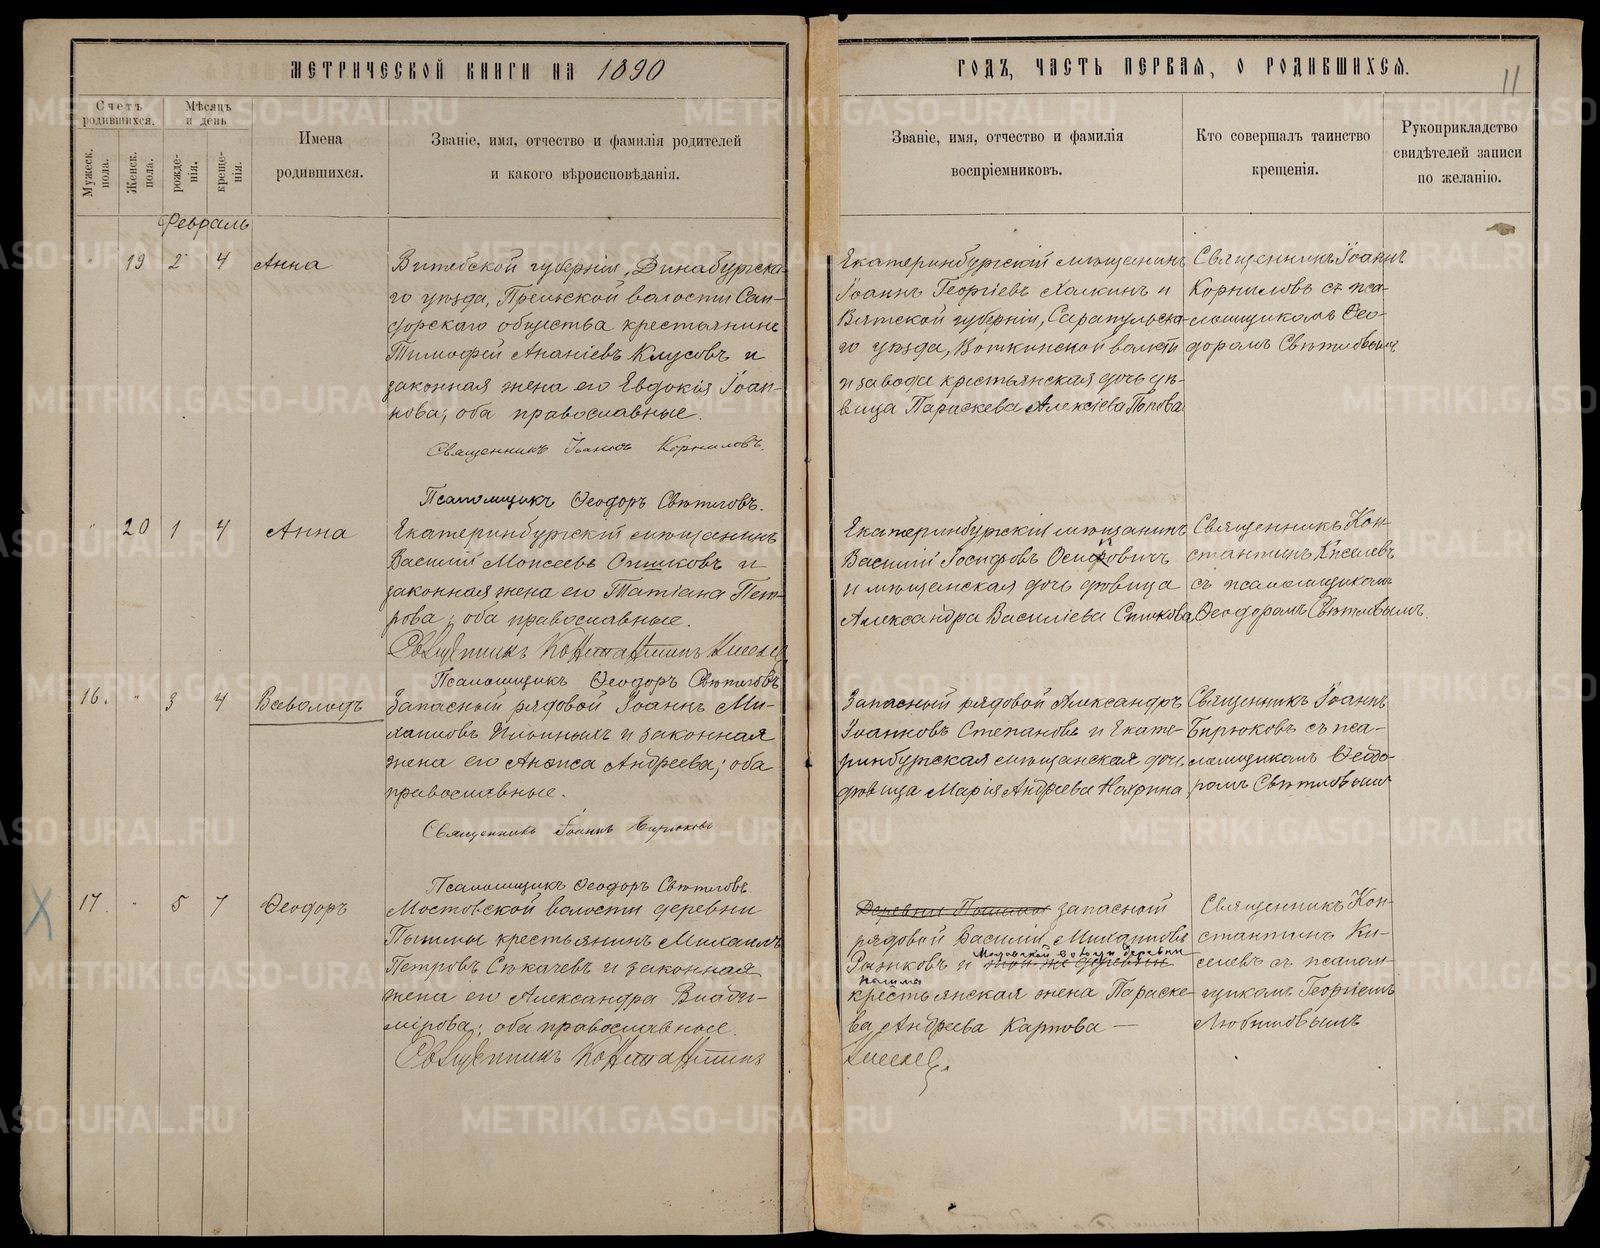 МЕТРИЧЕСКОЙ КНИГИ НА 1890
ГОДЪ, ЧАСТЬ ПЕРВАЯ, О РОДИВШИХСЯ.
11
Счетъ родившихся.
Мужеск. пола.
Женск. пола.
Мѣсяцъ и день
рожде-нія.
креще-нія.
Имена
родившихся.
Званіе, имя, отчество и фамилія родителей
и какого вѣроисповѣданія.
Званіе, имя, отчество и фамилія
воспріемниковъ.
Кто совершалъ таинство
крещенія.
Рукоприкладство
свидѣтелей записи
по желанію.
Февраль
19 2 4 Анна
Витебской губерніи, Динабургска-
го уѣзда, Прельской волости
общества крестьянинъ
Тимофей Ананіевъ Клусовъ и
законная жена его Евдокія Іоан-
нова; оба православные.
Священникъ Іоаннъ Корниловъ.
Псаломщикъ Ѳеодоръ Свѣтловъ.
Екатеринбургскій мѣщанинъ
Іоаннъ Георгіевъ Халкинъ и
Вятской губерніи, Сарапульска-
го уѣзда, Воткинской волости
и завода крестьянская дочь дѣ-
вица Параскева Алексіева Попова
Священникъ Іоаннъ
Корниловъ съ пса-
ломщикомъ Ѳео-
доромъ Свѣтловымъ
20 1 4 Анна
Екатеринбургскій мѣщанинъ
Василій Моисеевъ и
законная жена его Татіана Пет-
рова; оба православные.
Священникъ Константинъ Киселевъ
Псаломщикъ Ѳеодоръ Свѣтловъ
Екатеринбургскій мѣщанинъ
Василій Іосифовъ Осиповичъ
и мѣщанская дочь дѣвица
Александра Василіева
Священникъ Кон-
стантинъ Киселевъ
съ псаломщикомъ
Ѳеодоромъ Свѣтловымъ.
16. 3 4 Всеволодъ
Запасный рядовой Іоаннъ Ми-
хаиловъ Ильиныхъ и законная
жена его Анѳиса Андреева; оба
православные.
Священникъ Іоаннъ Бирюковъ
Псаломщикъ Ѳеодоръ Свѣтловъ.
Запасный рядовой Александръ
Іоанновъ Степановъ и Екате-
ринбургская мѣщанская дочь
дѣвица Марія Андреева
Священникъ Іоаннъ
Бирюковъ съ пса-
ломщикомъ Ѳеодо-
ромъ Свѣтловымъ
17. 5 7 Ѳеодоръ
Мостовской волости деревни
Пышмы крестьянинъ Михаилъ
Петровъ Секачевъ и законная
жена его Александра Влади-
мірова; оба православные.
Священникъ Константинъ
Киселев.
Деревни Пышмы запасный
рядовой Василій Михаиловъ
Рыжковъ и той-же деревни
Мостовской волости деревни
Пышмы
крестьянская жена Параске-
ва Андреева Карпова —
Священникъ Кон-
стантинъ Ки-
селевъ съ псалом-
щикомъ Георгіемъ
Любимовымъ
METRIKI.GASO-URAL.RU